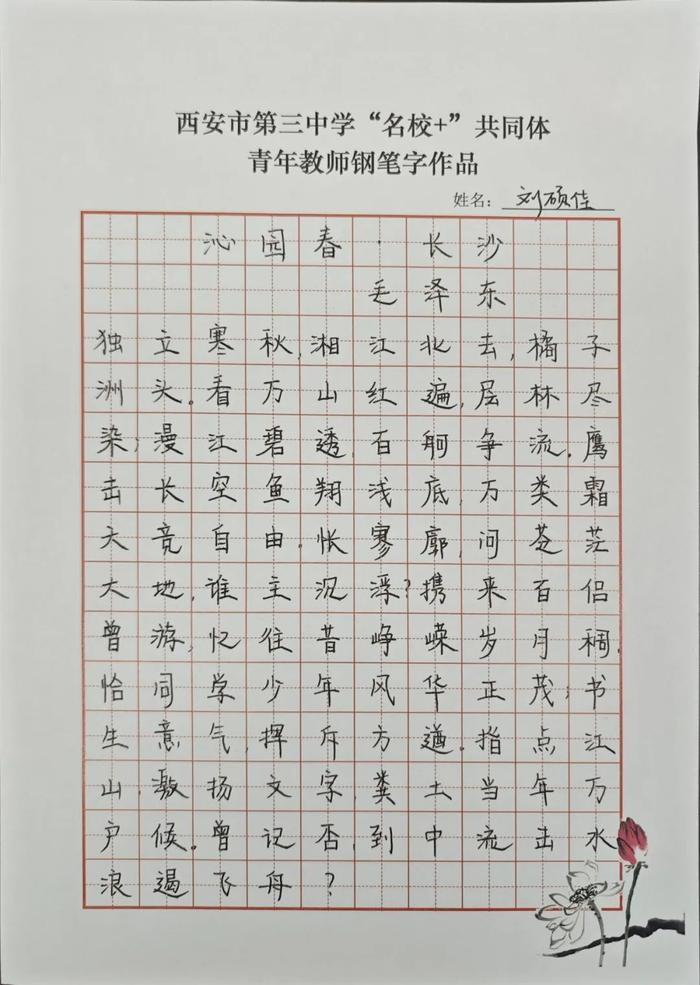 西安市第三中学“名校+”共同体
青年教师钢笔字作品
姓名：刘硕佳
沁园春·长沙
毛泽东
独立寒秋,湘江北去,橘子
洲头。看万山红遍,层林尽
染;漫江碧透,百舸争流。鹰
击长空鱼翔浅底,万类霜
天竞自由。怅寥廓,问苍茫
大地,谁主沉浮?携来百侣
曾游,忆往昔峥嵘岁月稠。
恰同学少年风华正茂;书
生意气,挥斥方遒。指点江
山,激扬文字,粪土当年万
户候。曾记否,到中流击水
浪遏飞舟?